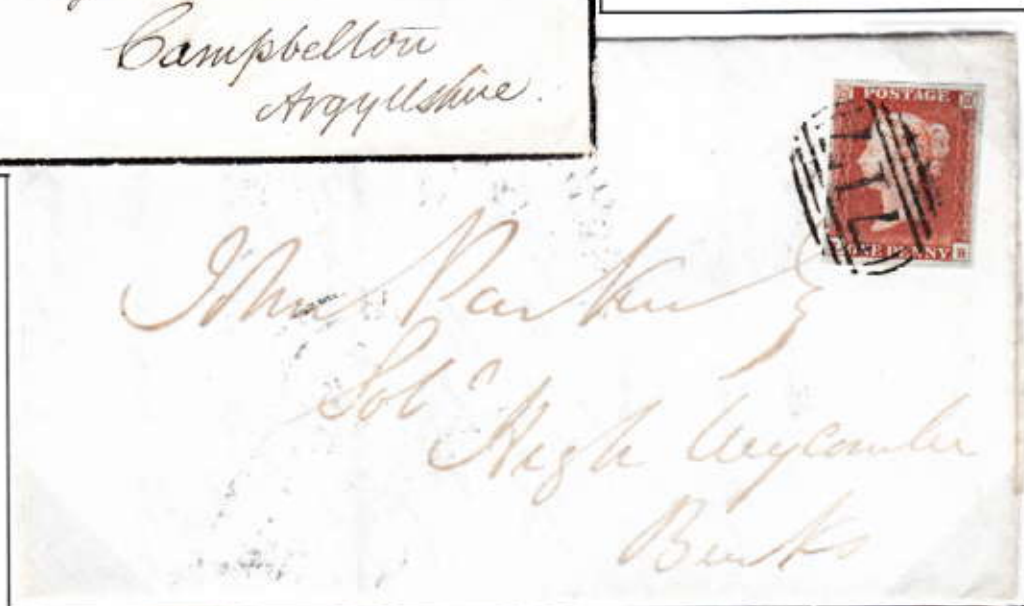 Campbelton
Argyllshire.
POSTAGE
ONE PENNY
John Parker
Solr
High Wycombe
Bucks